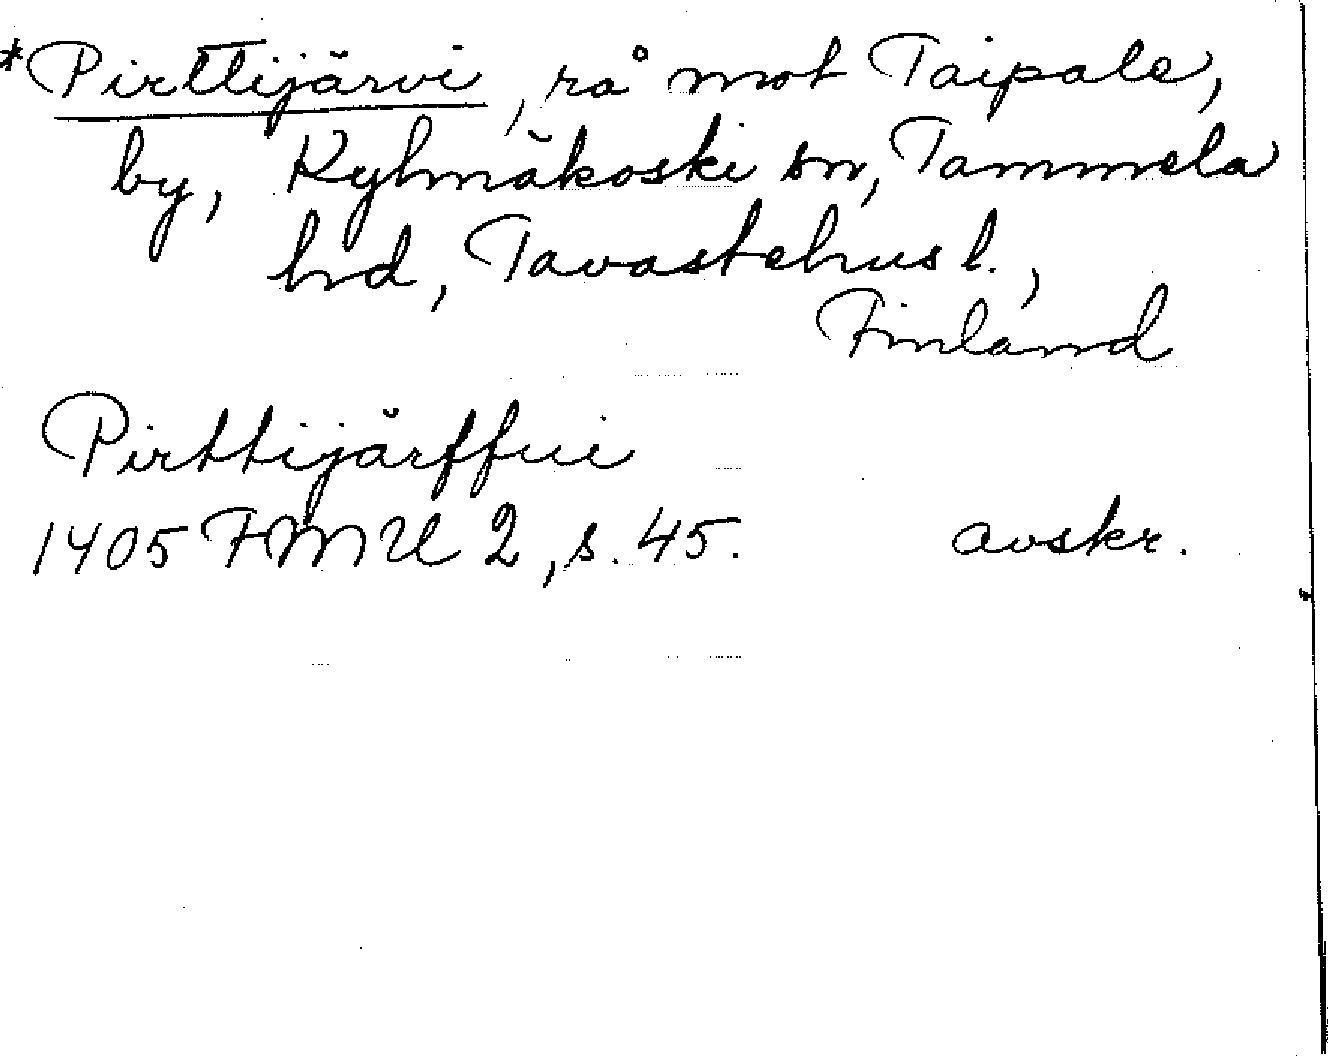 *Pirttijärvi, rå mot Taipale,
by, Kylmäkoski sn, Tammela
hd, Tavastehus l.,
Finland
Pirttijärffui
1405 FMU 2, s. 45. avskr.